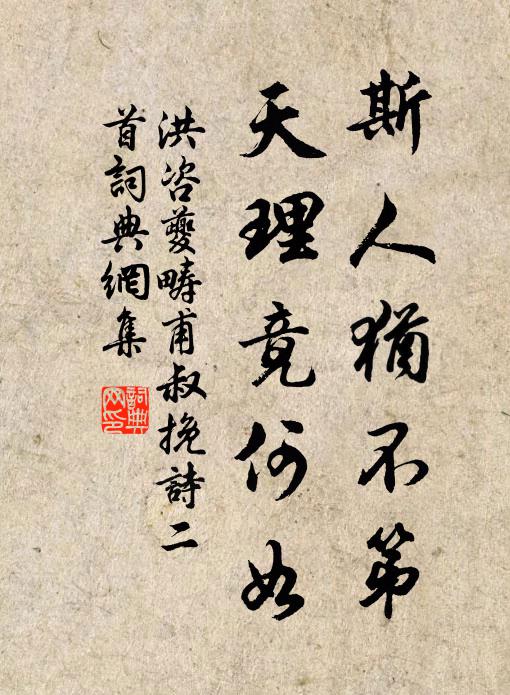 斯人猶不第
天理竟何如
洪咨夔疇甫叔挽詩二
首詞典網集
詞典网印